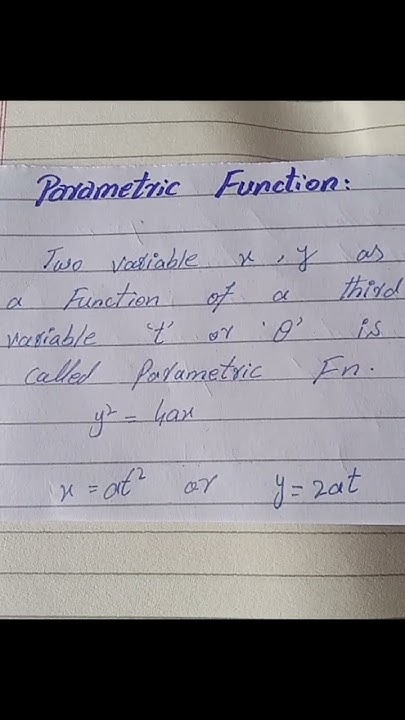 Parametric Function:
Two variable x, y as
a Function of a third
variable 't' or 'θ' is
called Parametric Fn.
y² = 4ax
x = at² or y = 2at